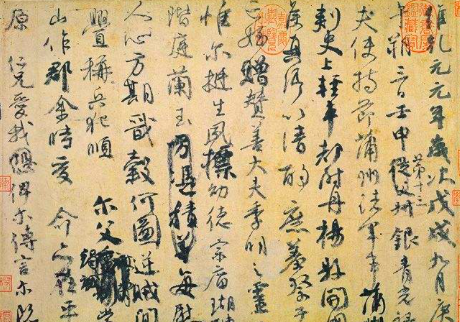 維乾元元年歲次戊戌九月庚
午朔三日壬申第十三叔銀青光祿
夫使持節蒲州諸軍事蒲州
刺史上輕車都尉丹楊縣開國
侯真卿以清酌庶羞祭于
亡姪贈贊善大夫季明之靈
惟爾挺生夙標幼德宗廟瑚
階庭蘭玉方憑積善每慰
人心方期戩穀何圖逆賊間
釁稱兵犯順爾父常
山作郡余時受命亦在平
原仁兄愛我俾爾傳言爾既